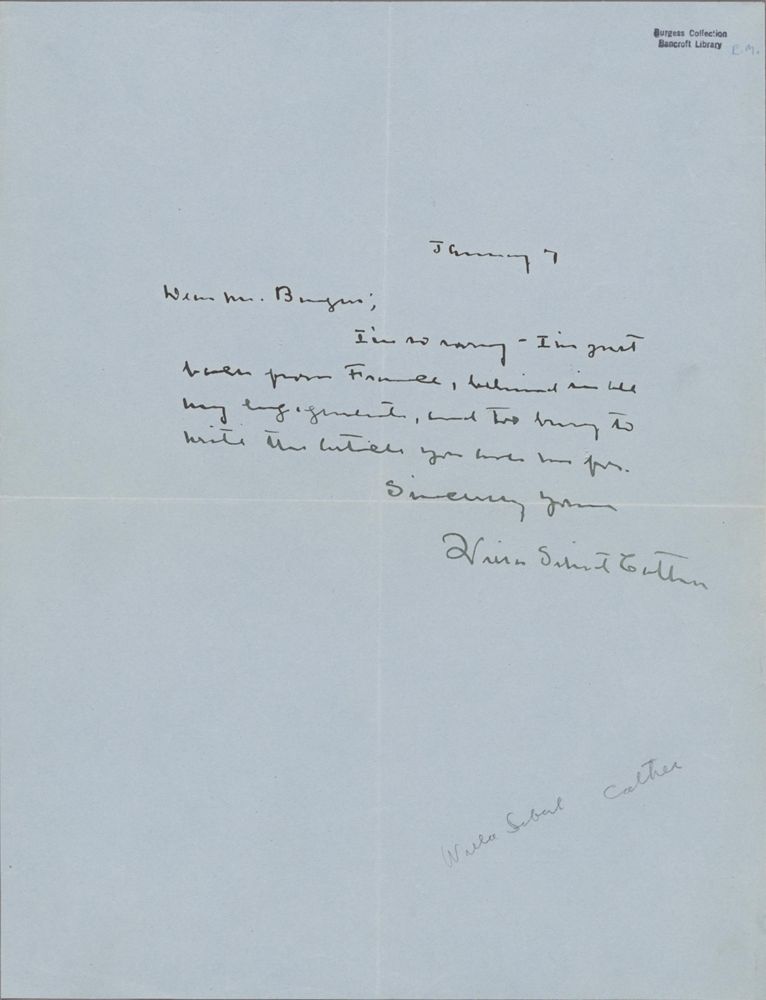 Burgess Collection
Bancroft Library
E.M.
January 7
Dear Mr. Burgess;
I'm so sorry - I'm just
back from France, behind in all
my engagements, and too busy to
write the article you ask me for.
Sincerely yours
Willa Sibert Cather
Willa Sibert Cather